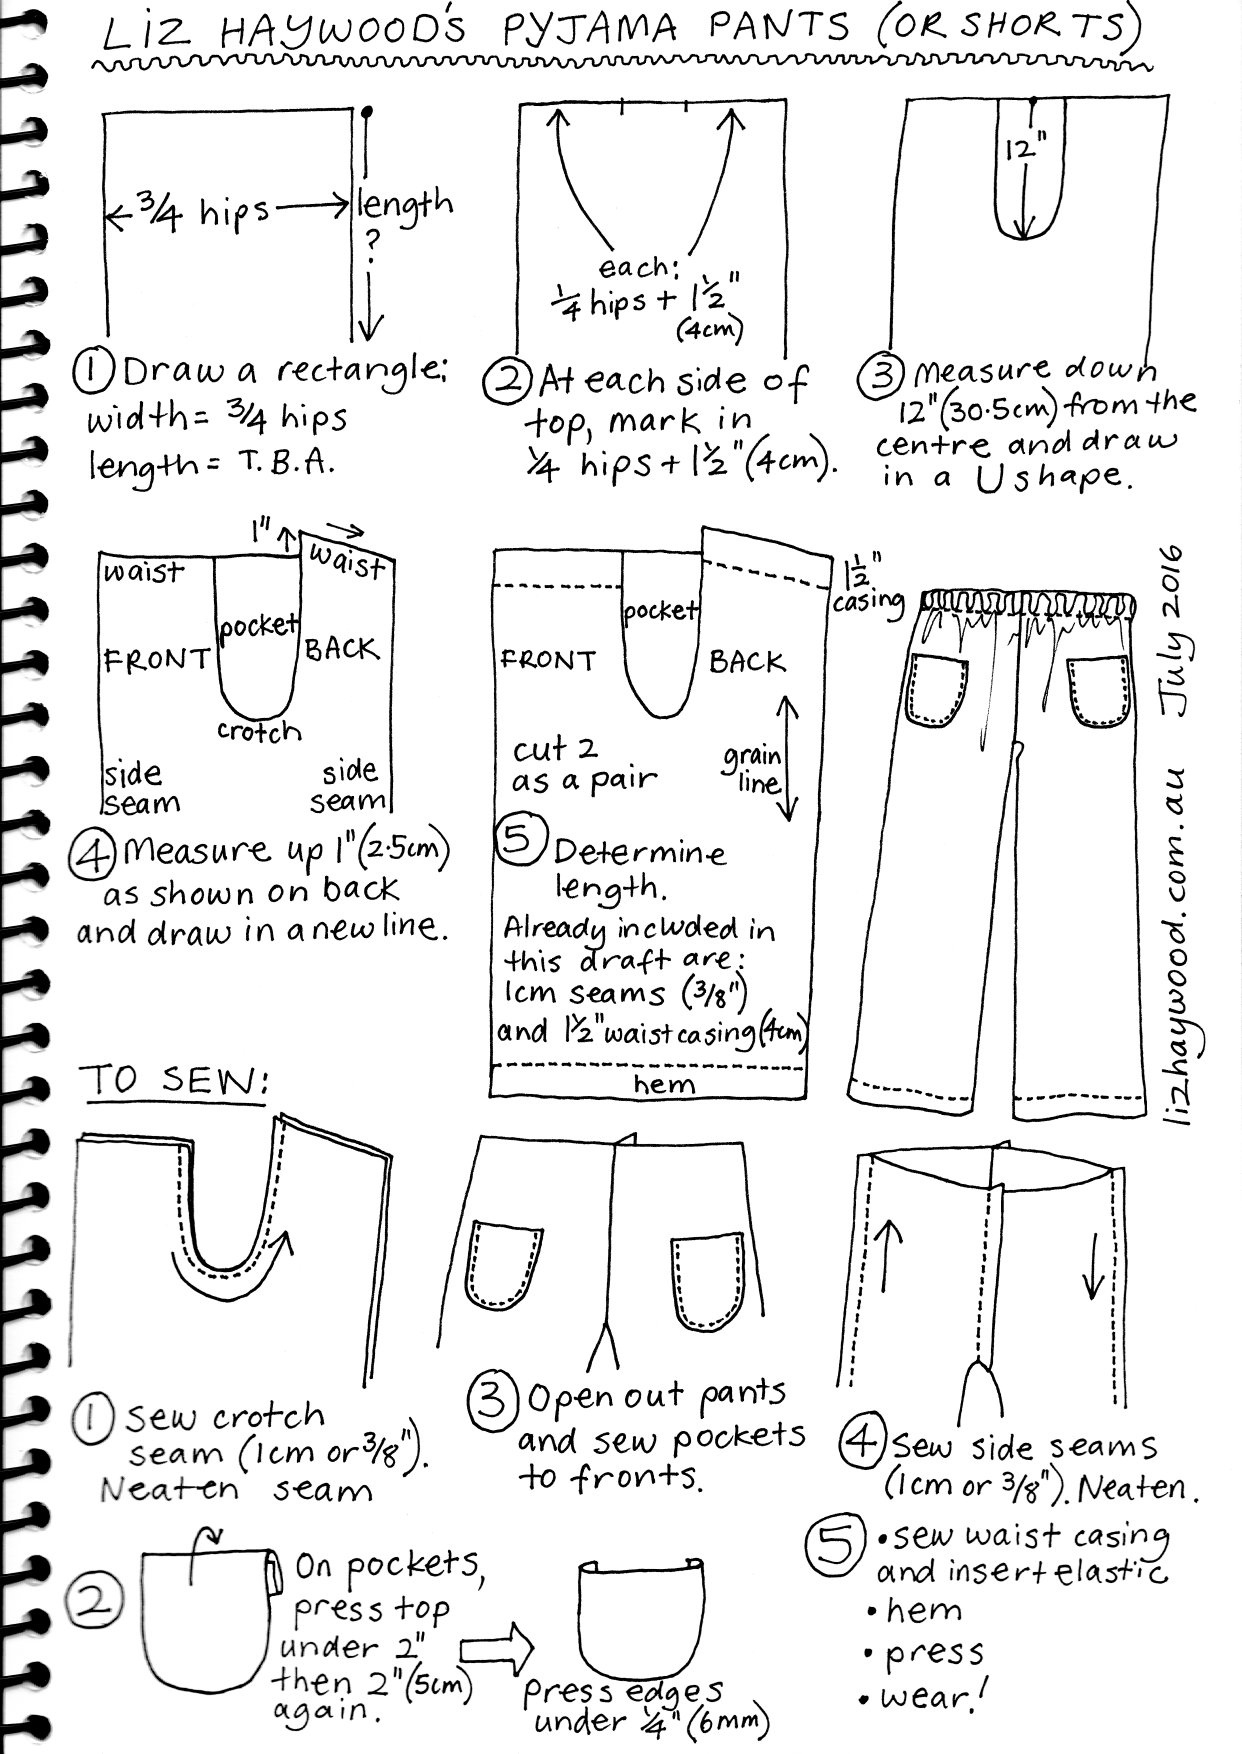 LIZ HAYWOOD'S PYJAMA PANTS (OR SHORTS)
3/4 hips
length
?
① Draw a rectangle:
width = 3/4 hips
length = T.B.A.
each:
1/4 hips + 1 1/2"
(4cm)
② At each side of
top, mark in
1/4 hips + 1 1/2" (4cm).
12"
③ Measure down
12" (30.5cm) from the
centre and draw
in a U shape.
1"
waist
waist
pocket
FRONT
BACK
crotch
side
seam
side
seam
④ Measure up 1" (2.5cm)
as shown on back
and draw in a new line.
1 1/2"
casing
pocket
FRONT
BACK
cut 2
as a pair
grain
line
⑤ Determine
length.
Already included in
this draft are:
1cm seams (3/8")
and 1 1/2" waist casing (4cm)
hem
lizhaywood.com.au July 2016
TO SEW:
① Sew crotch
seam (1cm or 3/8").
Neaten seam
② On pockets,
press top
under 2"
then 2" (5cm)
again.
press edges
under 1/4" (6mm)
③ Open out pants
and sew pockets
to fronts.
④ Sew side seams
(1cm or 3/8"). Neaten.
⑤ • sew waist casing
and insert elastic
• hem
• press
• wear!